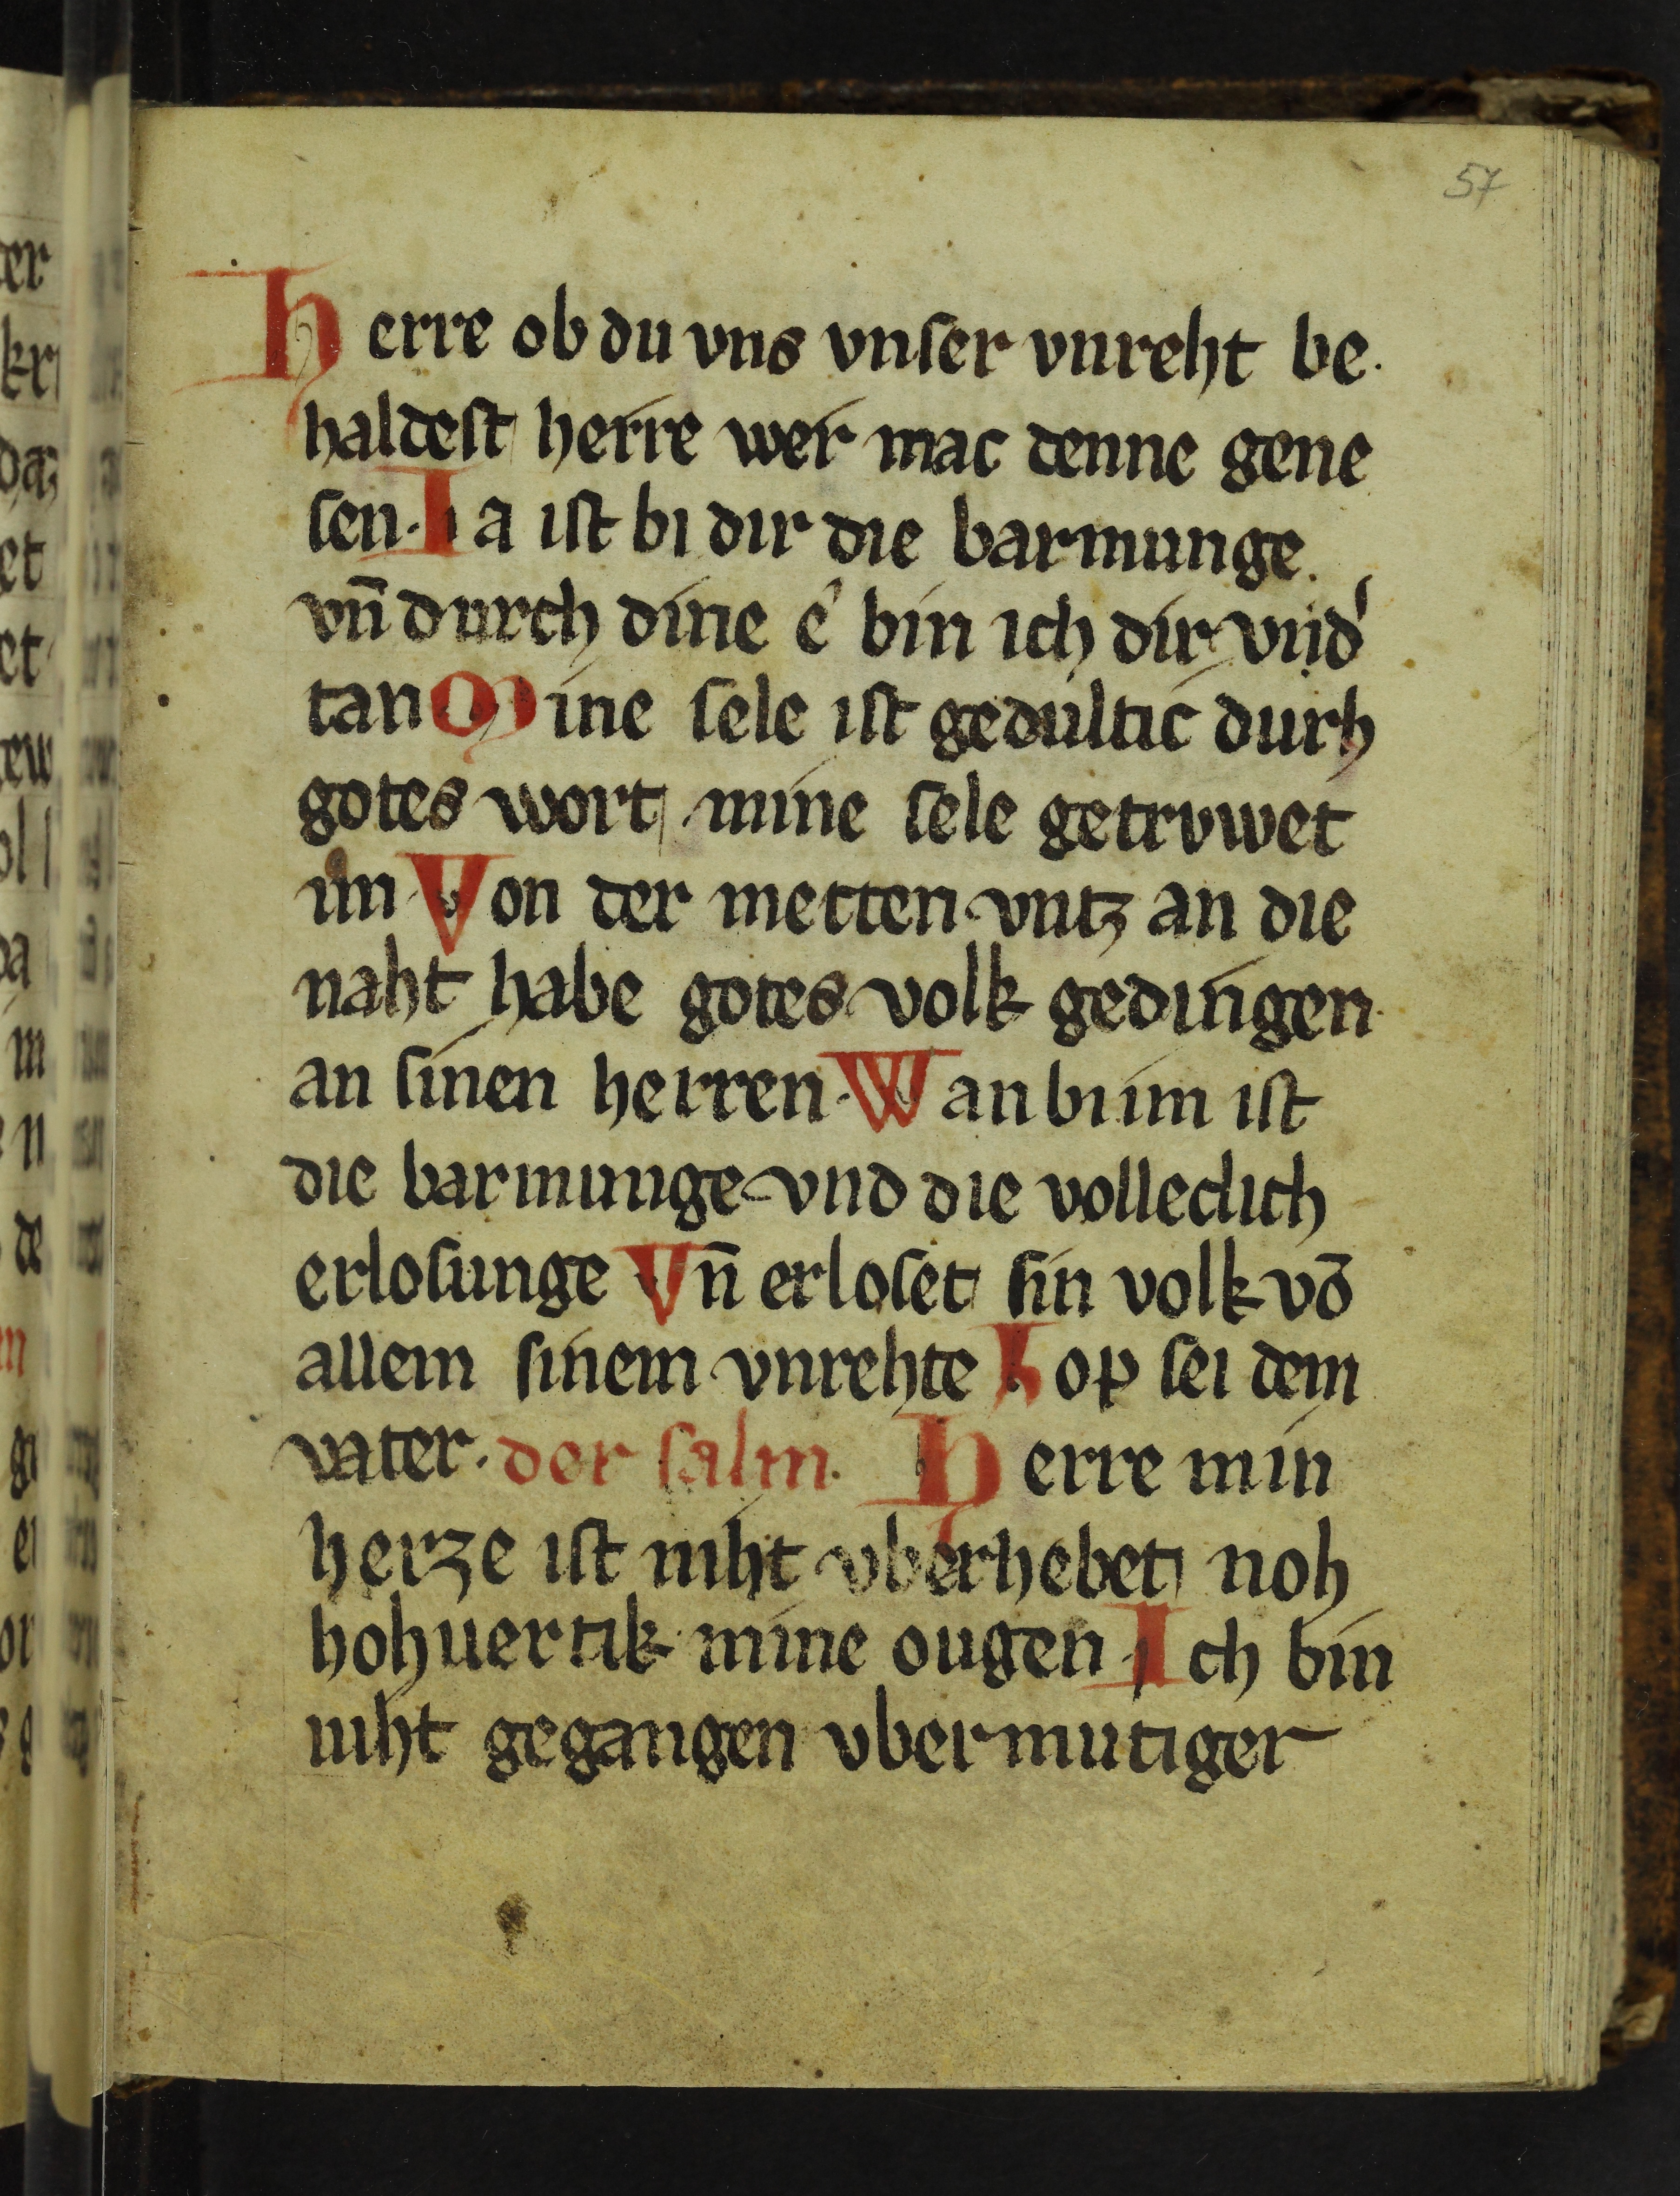 57
Herre ob du vns vnser vnreht be.
haldest herre wer mac denne gene
sen. Ia ist bi dir die barmunge.
vn̄ durch dine e' bin ich dir vnd'
tan Mine sele ist gedultic durh
gotes wort mine sele getrvwet
im Von der metten vntz an die
naht habe gotes volk gedingen
an sinen herren. Wan bi im ist
die barmunge vnd die volleclich
erlosunge Vn̄ erloset sin volk vō
allem sinem vnrehte Lop sei dem
vater. der salm. Herre min
herze ist niht vberhebet noh
hohuertik mine ougen. Ich bin
niht gegangen vbermutiger